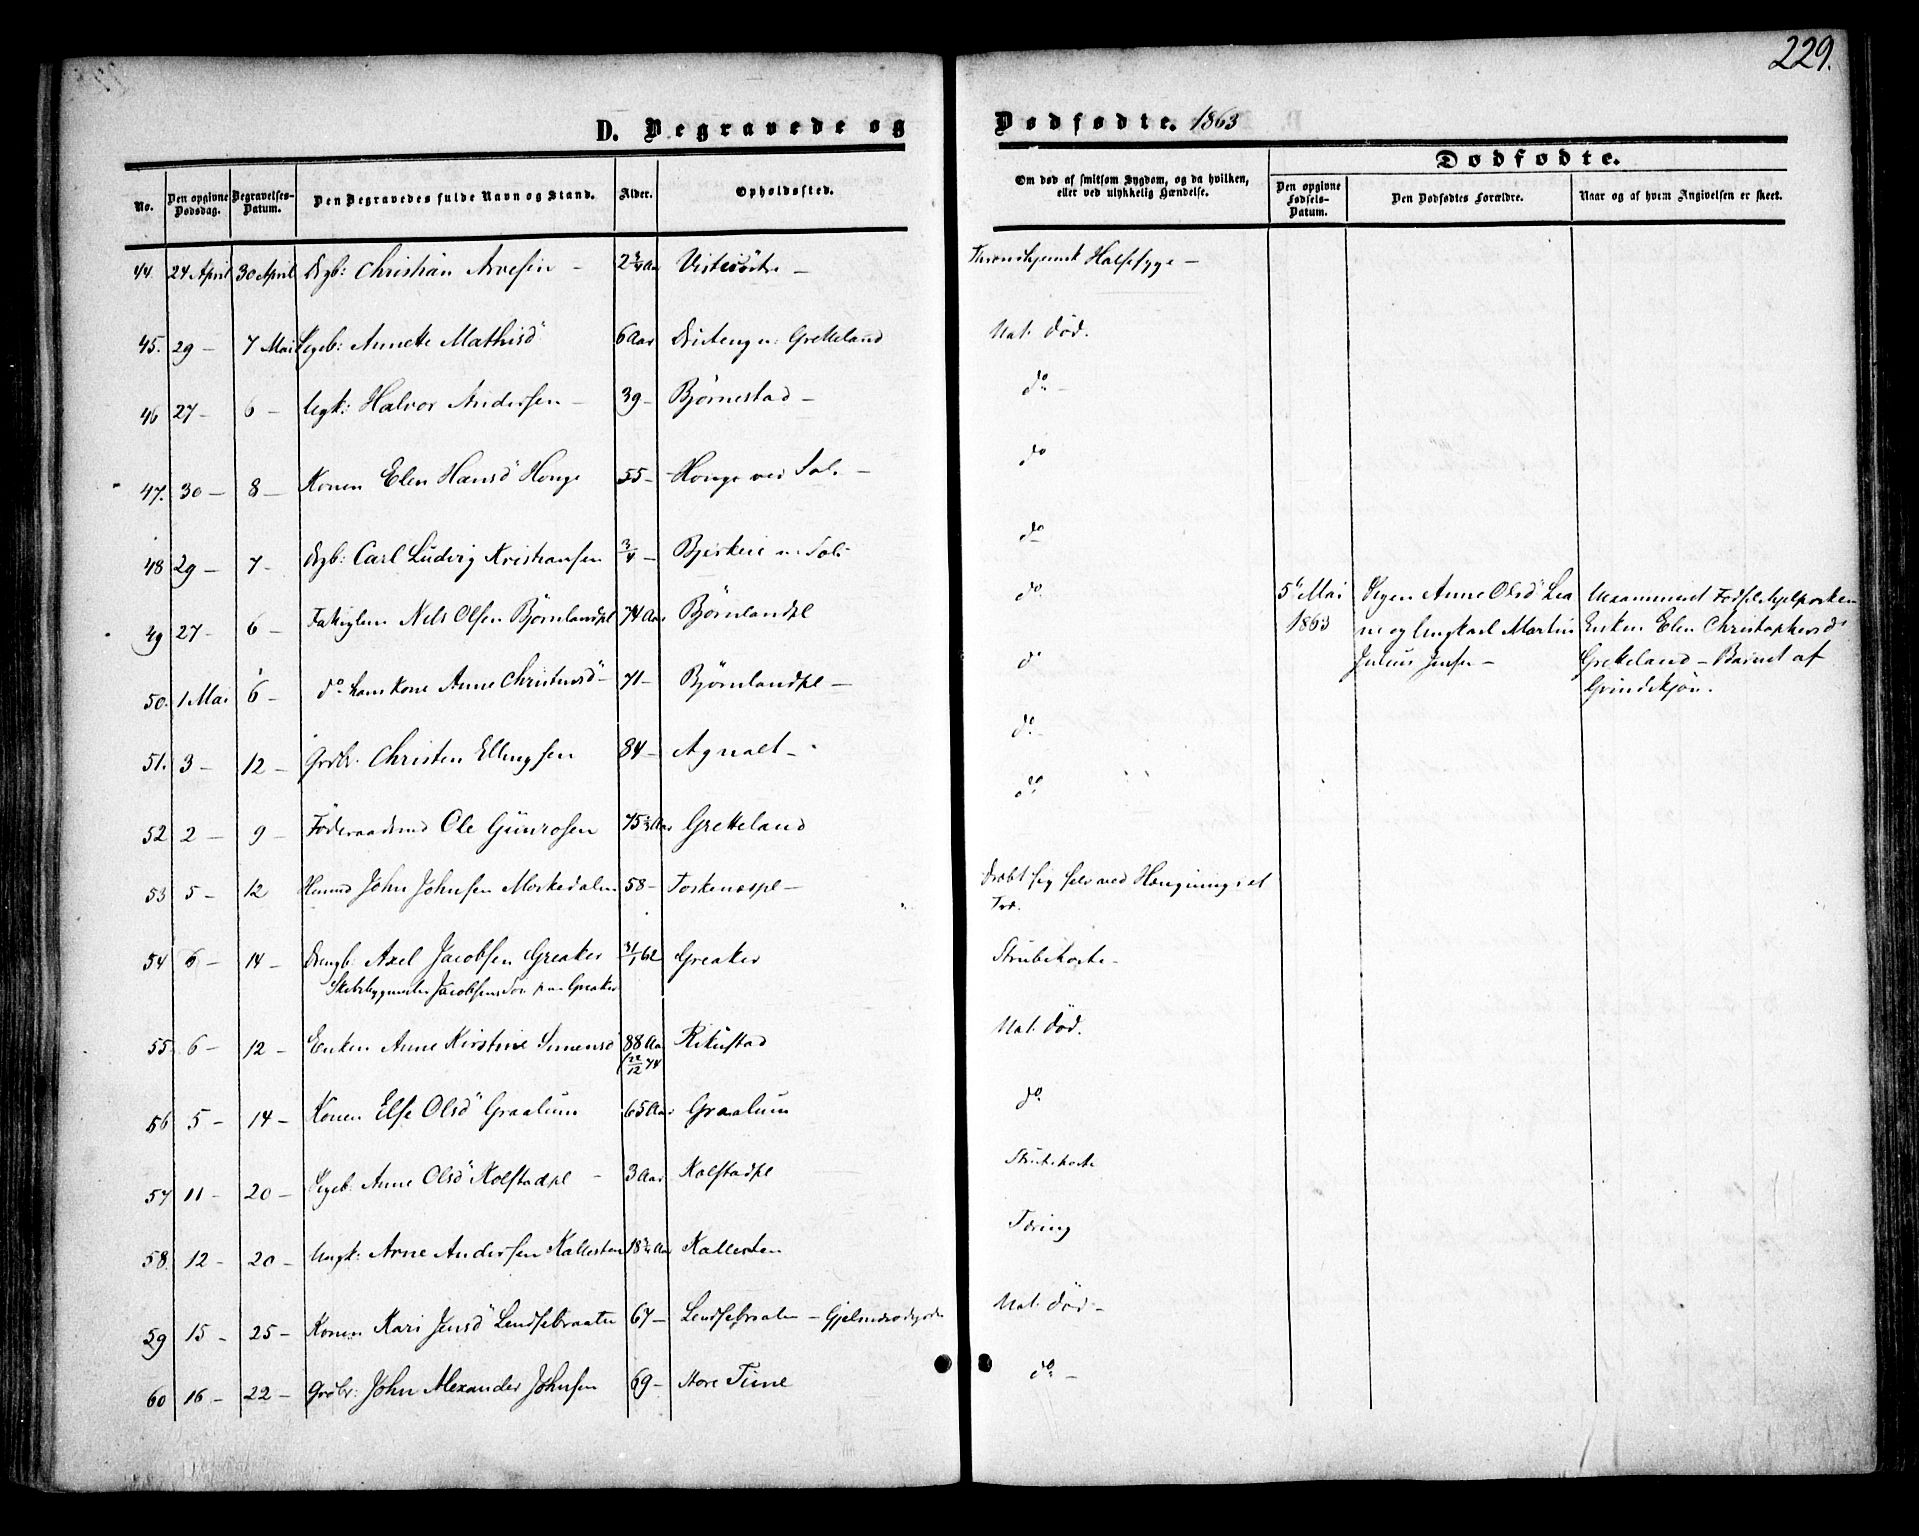 229.
D. Begravede og Dødfødte. 1863
Dødfødte.
No.
Den opgivne Dødsdag.
Begravelses-Datum.
Den Begravedes fulde Navn og Stand.
Alder.
Opholdssted.
Om død af smitsom Sygdom, og da hvilken,
eller ved ulykkelig Hændelse.
Den opgivne Fødsels-Datum.
Den Dødfødtes Forældre.
Naar og af hvem Angivelsen er skeet.
44. 24 April 30 April Drgb: Christian Arvesen – 2¾ Aar Halssyge –
45. 29 – 7 Mai Pigeb: Annette Mathisd 6 Aar u: Grelleland Nat. død.
46 27 – 6 – Ugk: Halvor Andersen – 39 – Bjørnestad – do –
47. 30 – 8 – Konen Elen Hansd Honge 55 – Honge ved Soli – do
48 29 – 7 – Drgb: Carl Ludvig Kristiansen ¾ – u. Soli do
49 27 – 6 – Fattiglem Nels Olsen Bjørnlandpl 74 Aar Bjørnlandpl do
5t Mai Pigen Anne Olsd Uexamineret Fødselshjelpersken
1863 ne og Ungkarl Martin Enken Elen Christophersd
Julius Jensen – Grelleland – Barnet af
Qvindekjøn.
50. 1 Mai 6 – do hans Kone Anne Christensd – 71 – Bjørnlandpl – do
51. 3 – 12 – Grdbr. Christen Ellingsen 84 – Agnalt – do –
52 2 – 9 – Føderaadsmd Ole Gunrosen 75½ Aar Grelleland do
53 5 – 12 Husmd John Johnsen Moskedalen 58 – Torkenæspl – Dræbt sig selv ved Hængning i et
Træ.
54 6 – 14 – Drengb: Axel Jacobsen Greaker 31/1 62 Greaker Strubehoste –
Skibsbygmester Jacobsens Søn paa Greaker
55 6 – 12 – Enken Anne Kirstine Simensd 88 Aar Rikustad Nat. død.
(22/12 74
56 5 – 14 – Konen Else Olsd Graalum 65 Aar Graalum do
57 11 – 20 – Pigeb. Anne Olsd Kolstadpl – 3 Aar Kolstadpl Strubehoste
58. 12 – 20 – Ungk: Arne Andersen Kallesten 18¾ Aar Kallesten Tæring
59 15 – 25 – Konen Kari Jensd Lundsebraaten 67 – Lundsebraaten – Nat. død –
60 16 – 22 – Grdbr: John Alexander Johnsen 69 – Store Tune do –